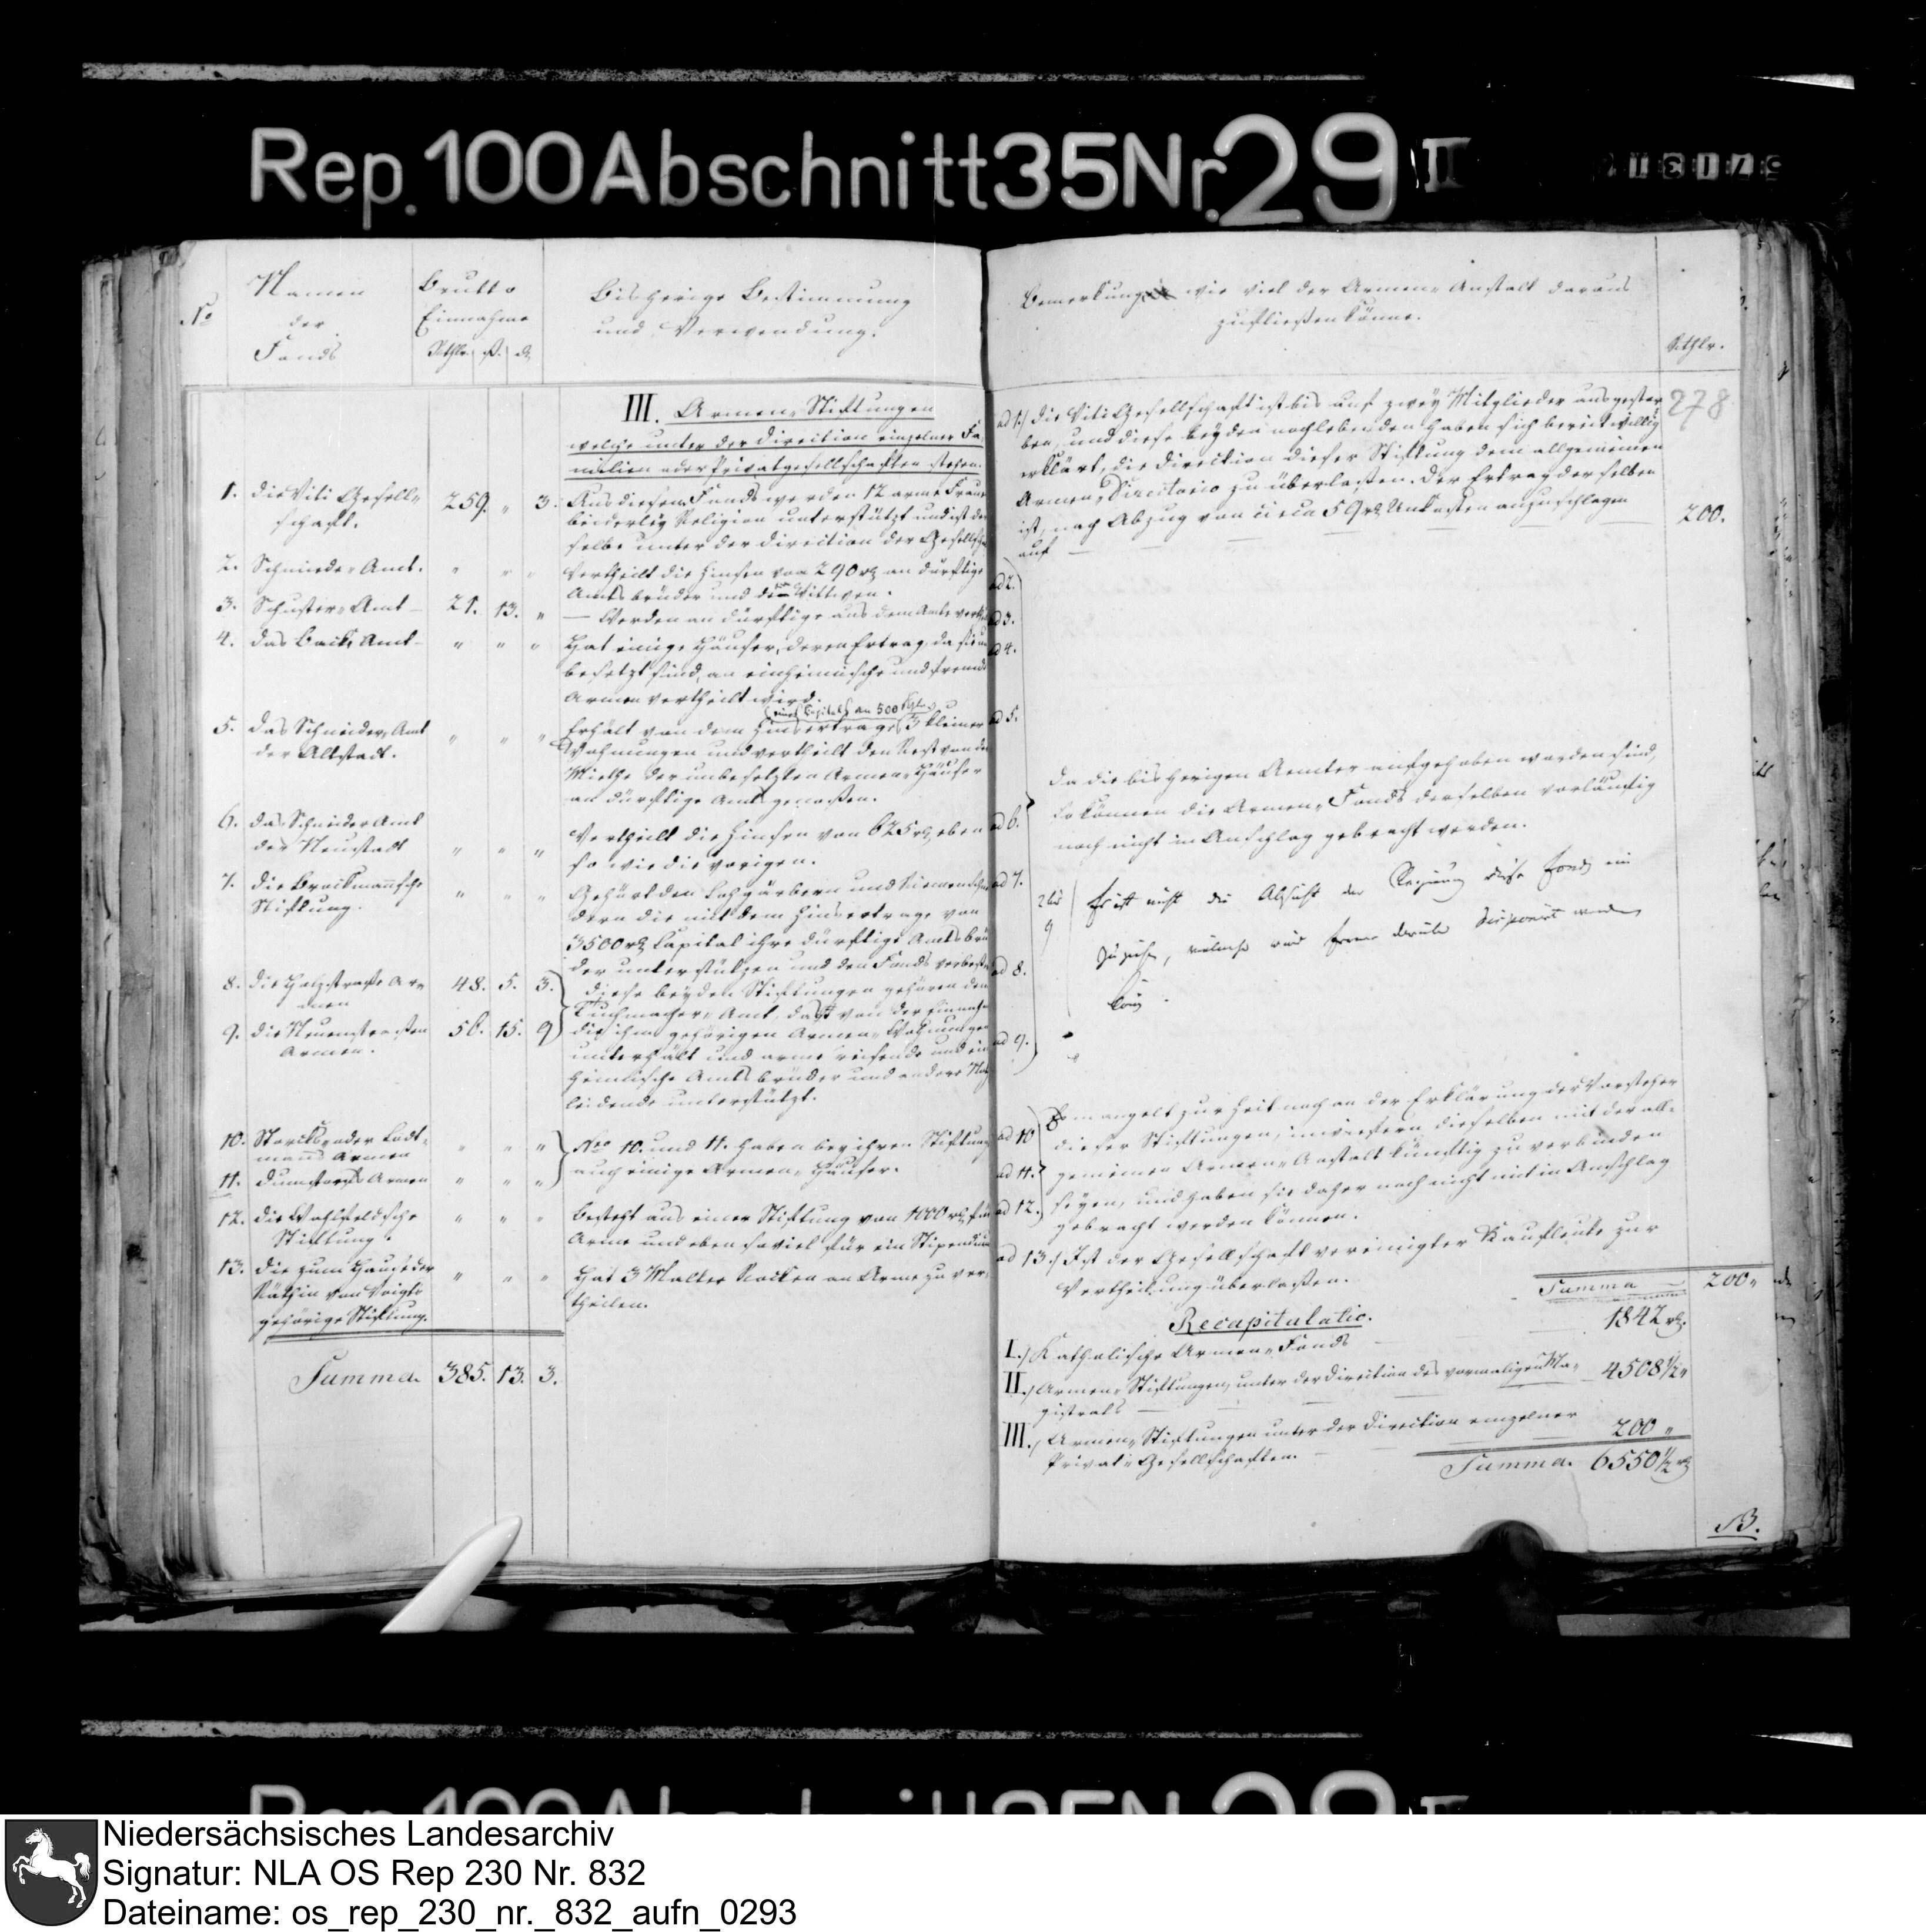 Rep. 100 Abschnitt 35 Nr. 29 II
No
Namen
der
Fonds
Brutto
Einnahme
Rthlr. ß. d
Bisherige Bestimmung
und Verwendung.
III. Armen-Stiftungen
welche unter der Direction einzelner Fa-
milien oder Privatgesellschaften stehen.
1. Die Viti Gesell-
schaft.
259. " 3.
Aus diesem Fonds werden 12 arme Frauen
beiderley Religion unterstützt und ist der-
selbe unter der Direction der Gesellsch
2. Schmiede-Amt. " " "
Vertheilt die Zinsen von 290 rt an dürftige
Amtsbrüder und deren Wittwen.
3. Schuster-Amt — 21. 13. "
— Werden an dürftige aus dem Amte
4. Das Back-Amt — " " "
Hat einige Häuser, deren Ertrag, da sie un-
besetzt sind, an einheimische und fremde
Armen vertheilt wird.
5. Das Schneider-Amt
der Altstadt. " " "
(eines Capitals von 500 Rthlr)
Erhält von dem Zinsertrage 3 kleine
Wohnungen und vertheilt den Rest von der
Miethe der unbesetzten Armen-Häuser
an dürftige Amtsgenossen.
6. Das Schneider Amt
der Neustadt " " "
Vertheilt die Zinsen von 625 rt, eben
so wie die vorigen.
7. Die Brockmannsche
Stiftung. " " "
Gehört den Lohgärbern und Riemenschnei-
dern die mit dem Zinsertrage von
3500 rt Capital ihre dürftige Amtsbrü-
der unterstützen und den Fonds verbessern
8. Die Holzstraße Ar-
men 48. 5. 3.
Diese beyden Stiftungen gehören dem
Tuchmacher-Amt, das von der Einnahme
9. Die Neuenstraßen
Armen. 56. 15. 9
die ihm gehörigen Armen-Wohnungen
unterhält und arme reisende und ein
heimische Amtsbrüder und andere Noth
leidende unterstützt.
10. Storcks oder Lodt-
manns Armen " " "
11. Dumstorfs Armen " " "
No 10. und 11. haben bey ihren Stiftungen
auch einige Armen-Häuser.
12. Die Wahlfeldsche
Stiftung. " " "
Besteht aus einer Stiftung von 1000 rt für
Arme und eben soviel für ein Stipendium
13. Die zum Hause der
Räthin von Voigts
gehörige Stiftung. " " "
Hat 3 Malter Rocken an Arme zu ver-
theilen.
Summa. 385. 13. 3.
Bemerkung wie viel der Armen-Anstalt daraus
zufließen könne.
Rthlr.
278
ad 1.) Die Viti Gesellschaft ist bis auf zwey Mitglieder ausgestor-
ben, und diese beyden nachlebenden haben sich bereitwillig
erklärt, die Direction dieser Stiftung dem allgemeinen
Armen-Directorio zu überlassen. Der Ertrag derselben
ist, nach Abzug von circa 59 rt Unkosten anzuschlagen
auf — — — 200.
ad 2.
ad 3.
ad 4.
ad 5.
ad 6.
ad 7.
ad 8.
ad 9.
Da die bisherigen Aemter aufgehoben worden sind,
so können die Armen-Fonds derselben vorläufig
noch nicht in Anschlag gebracht werden.
2 bis
9
Es ist nicht die Absicht der Regierung diese Fonds ein
zuziehen, vielmehr wird ferner darüber disponirt werden
ad 10
ad 11.
ad 12.
Es mangelt zur Zeit noch an der Erklärung der Vorsteher
dieser Stiftungen, inwiefern dieselben mit der all-
gemeinen Armen-Anstalt künftig zu verbinden
seyen, und haben sie daher noch nicht mit in Anschlag
gebracht werden können.
ad 13.) Ist der Gesellschaft vereinigter Kaufleute zur
Vertheilung überlassen.
Summa — 200 "
Recapitulatio.
I.) Katholische Armen-Fonds — 1842 rt.
II.) Armen-Stiftungen, unter der Direction des vormaligen Ma-
gistrats — 4508 1/2 "
III.) Armen-Stiftungen unter der Direction einzelner
Privat-Gesellschaften. — 200 "
Summa. 6550 1/2 rt
B.
Niedersächsisches Landesarchiv
Signatur: NLA OS Rep 230 Nr. 832
Dateiname: os_rep_230_nr._832_aufn_0293